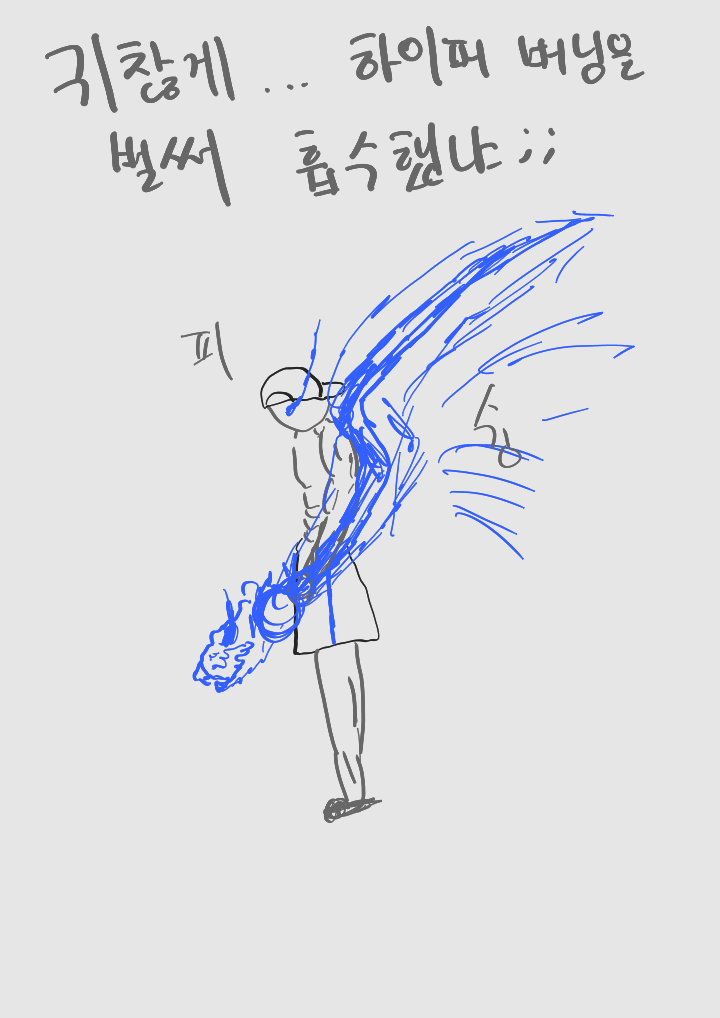 귀찮게 ... 하이퍼 버닝을
벌써 흡수했냐;;
피
슝